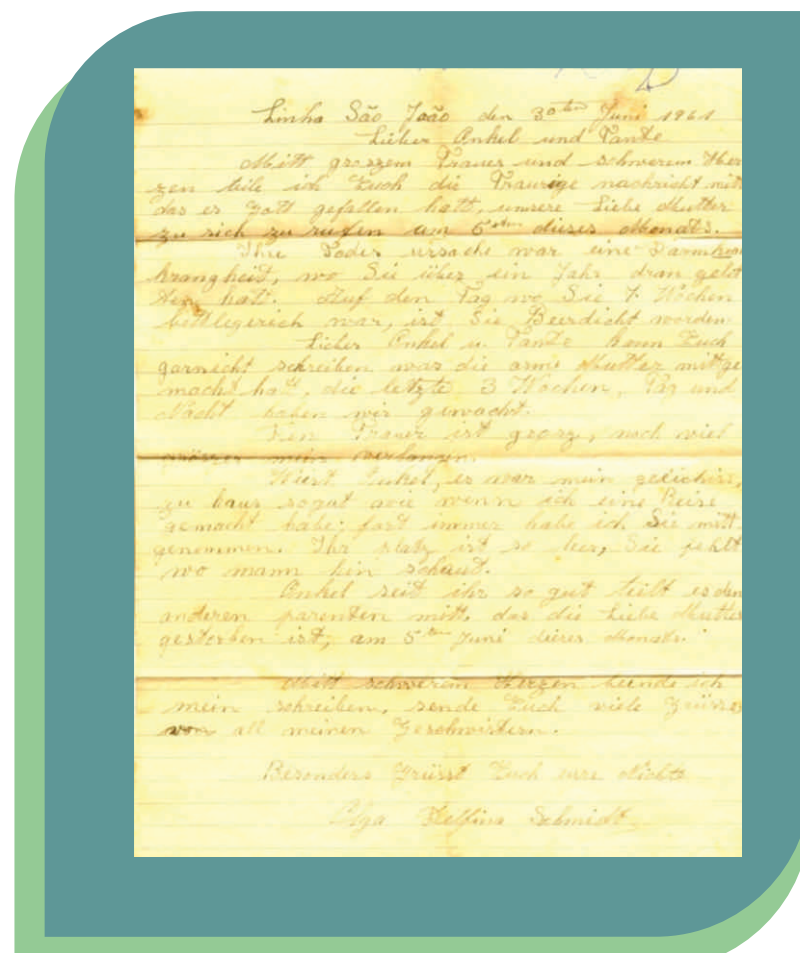 Linha São João den 30ten Juni 1961
Lieber Onkel und Tante
Mitt groszem Trauer und schwerem Her
zen teile ich Euch die Traurige nachricht mitt
das es Gott gefallen hatt, unsere Liebe Mutter
zu sich zu rufen am 5ten dieses Monats.
Ihre Todes ursache war eine Darm
krangheit, wo Sie über ein Jahr dran gelit
ten hatt. Auf den Tag wo Sie 7 Wochen
bettlegerich war, ist Sie Beerdicht worden
Lieber Onkel u. Tante kann Euch
garnicht schreiben was die arme Mutter mittge
macht hatt, die letzte 3 Wochen, Tag und
Nacht haben wir gewacht.
Trauer ist grosz, noch viel
grösser mein verlangen.
Onkel, es war mein
zu haus sogut wie wenn ich eine Reise
gemacht habe; fast immer habe ich Sie mitt
genommen. Ihr platz ist so leer, Sie fehlt
wo mann hin schaut.
Onkel seit ihr so gut teilt es den
anderen parenten mitt, das die Liebe Mutter
gestorben ist, am 5ten Juni dieses Monats.
Mitt schwerem Herzen beende ich
mein schreiben, sende Euch viele Grüsse
von all meinen Geschwistern.
Besonders Grüsst Euch eure Nichte
Olga Schmidt